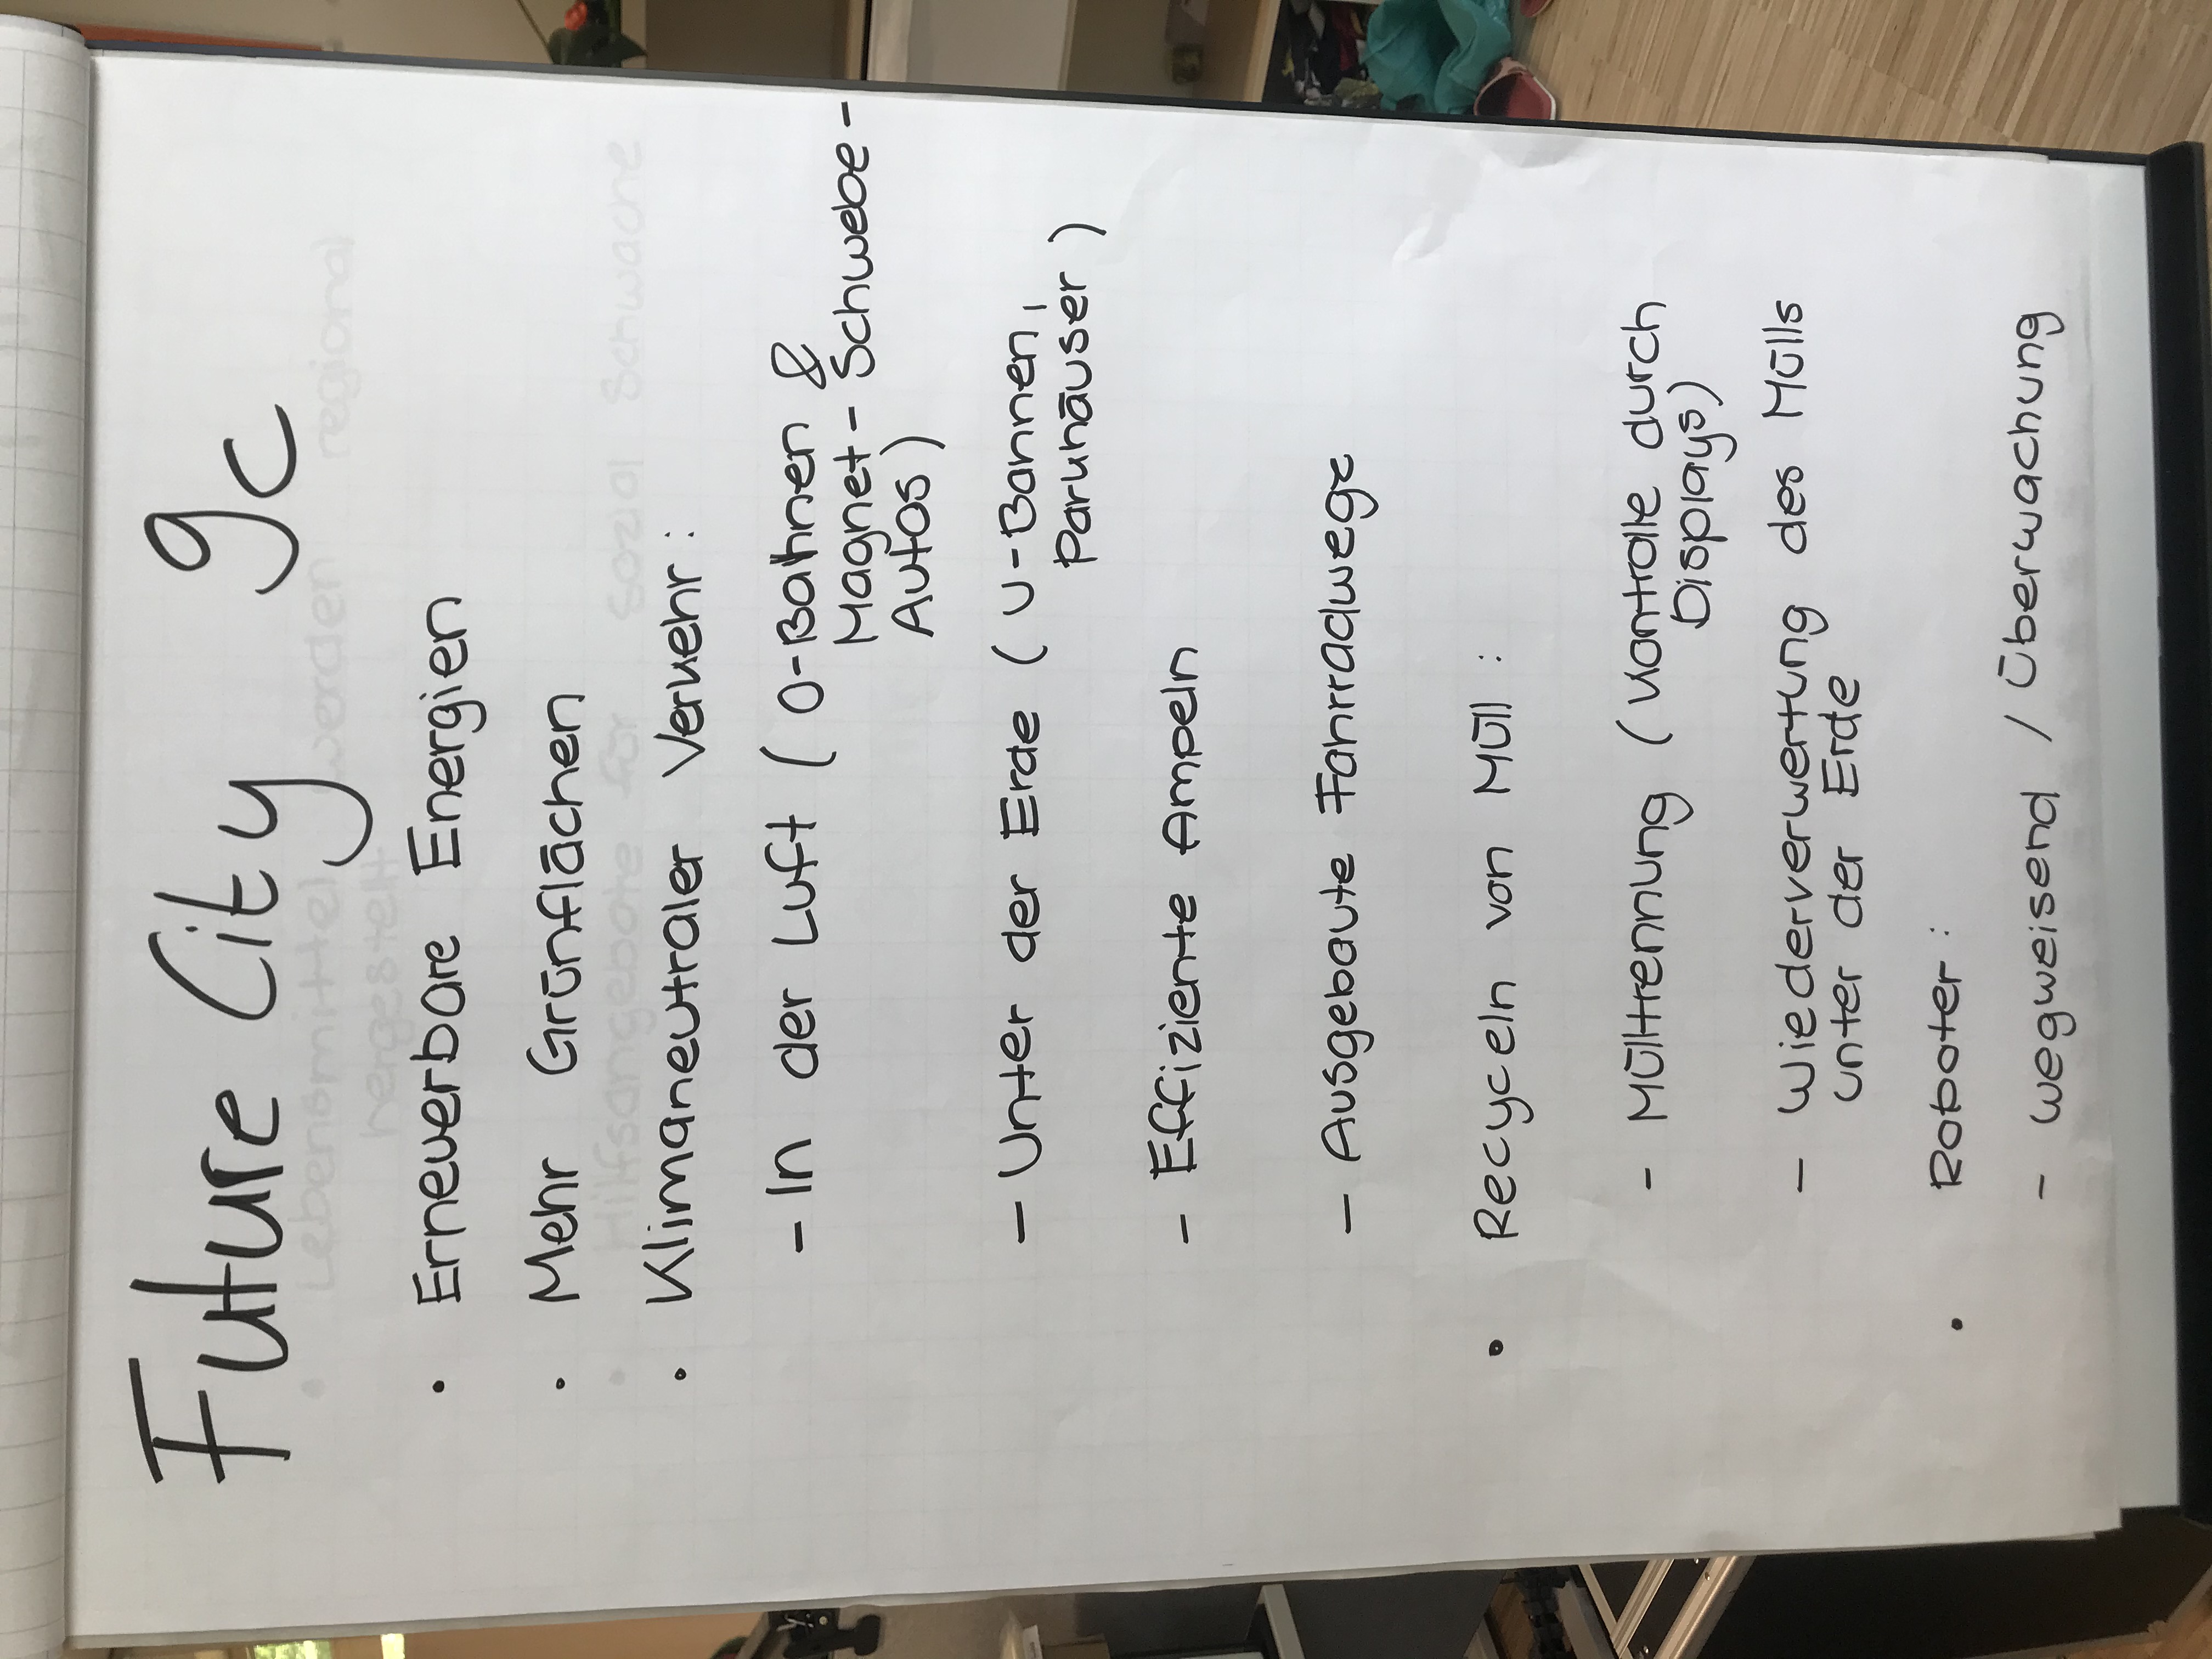 Future City 9c
• Lebensmittel werden regional
hergestellt
• Erneuerbare Energien
• Mehr Grünflächen
• Hilfsangebote für sozial Schwache
• Klimaneutraler Verkehr:
- In der Luft ( O-Bahnen &
Magnet-Schwebe-
Autos )
- Unter der Erde ( U-Bahnen,
Parkhäuser )
- Effiziente Ampeln
- Ausgebaute Fahrradwege
• Recyceln von Müll :
- Mülltrennung ( Kontrolle durch
Displays)
- Wiederverwertung des Mülls
unter der Erde
• Roboter :
- wegweisend / Überwachung